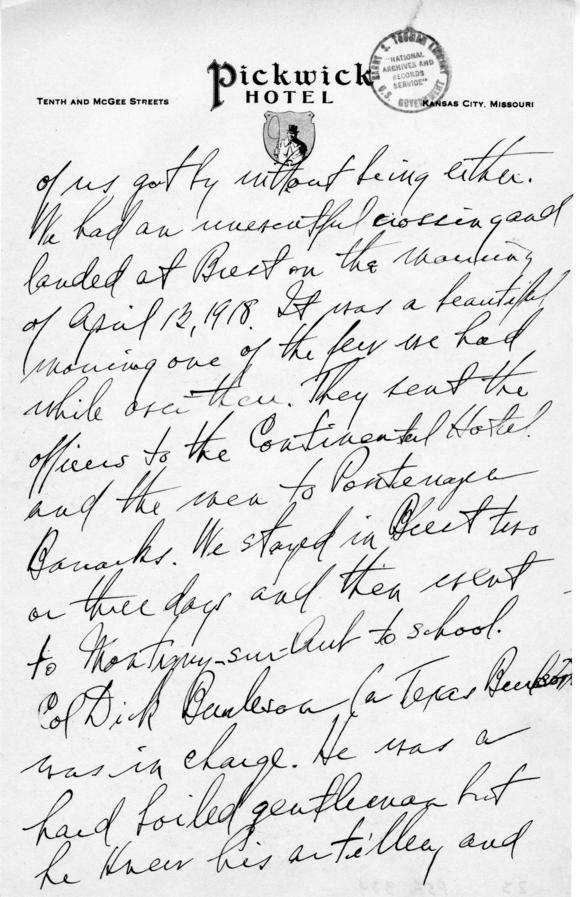 Pickwick
HOTEL
TENTH AND MCGEE STREETS
KANSAS CITY, MISSOURI
HARRY S. TRUMAN LIBRARY
"NATIONAL
ARCHIVES AND
RECORDS
SERVICE"
U.S. GOVERNMENT
of us got by without being either.
We had an uneventful crossing and
landed at Brest on the morning
of April 13, 1918. It was a beautiful
morning one of the few we had
while over there. They sent the
officers to the Continental Hotel.
and the men to Pontenazen
Barracks. We stayed in Brest two
or three days and then went
to Montigny-sur Aube to school.
Col Dick Burleson (a Texas Burleson
was in charge. He was a
hard boiled gentleman but
he knew his artillery and